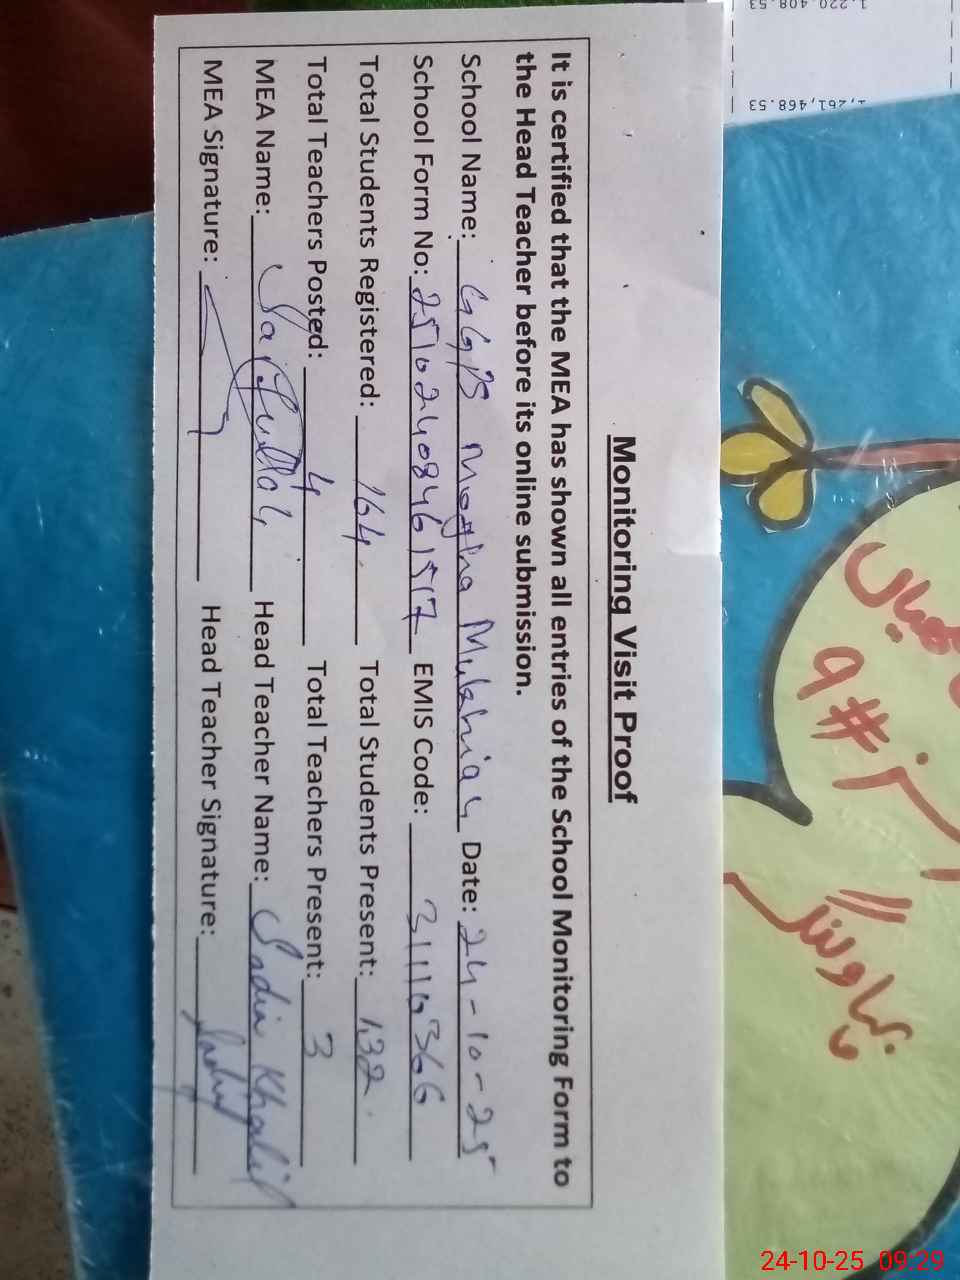 Monitoring Visit Proof
It is certified that the MEA has shown all entries of the School Monitoring Form to
the Head Teacher before its online submission.
School Name: GGPS Mogha Mulahiah Date: 24-10-25
School Form No: 25102408461517 EMIS Code: 31110366
Total Students Registered: 164 Total Students Present: 132
Total Teachers Posted: 4 Total Teachers Present: 3
MEA Name: Saifullah Head Teacher Name: Sadia Khalil
MEA Signature: Head Teacher Signature:
1,220,408.53
1,261,468.53
9#
بہاولنگر
24-10-25 09:29